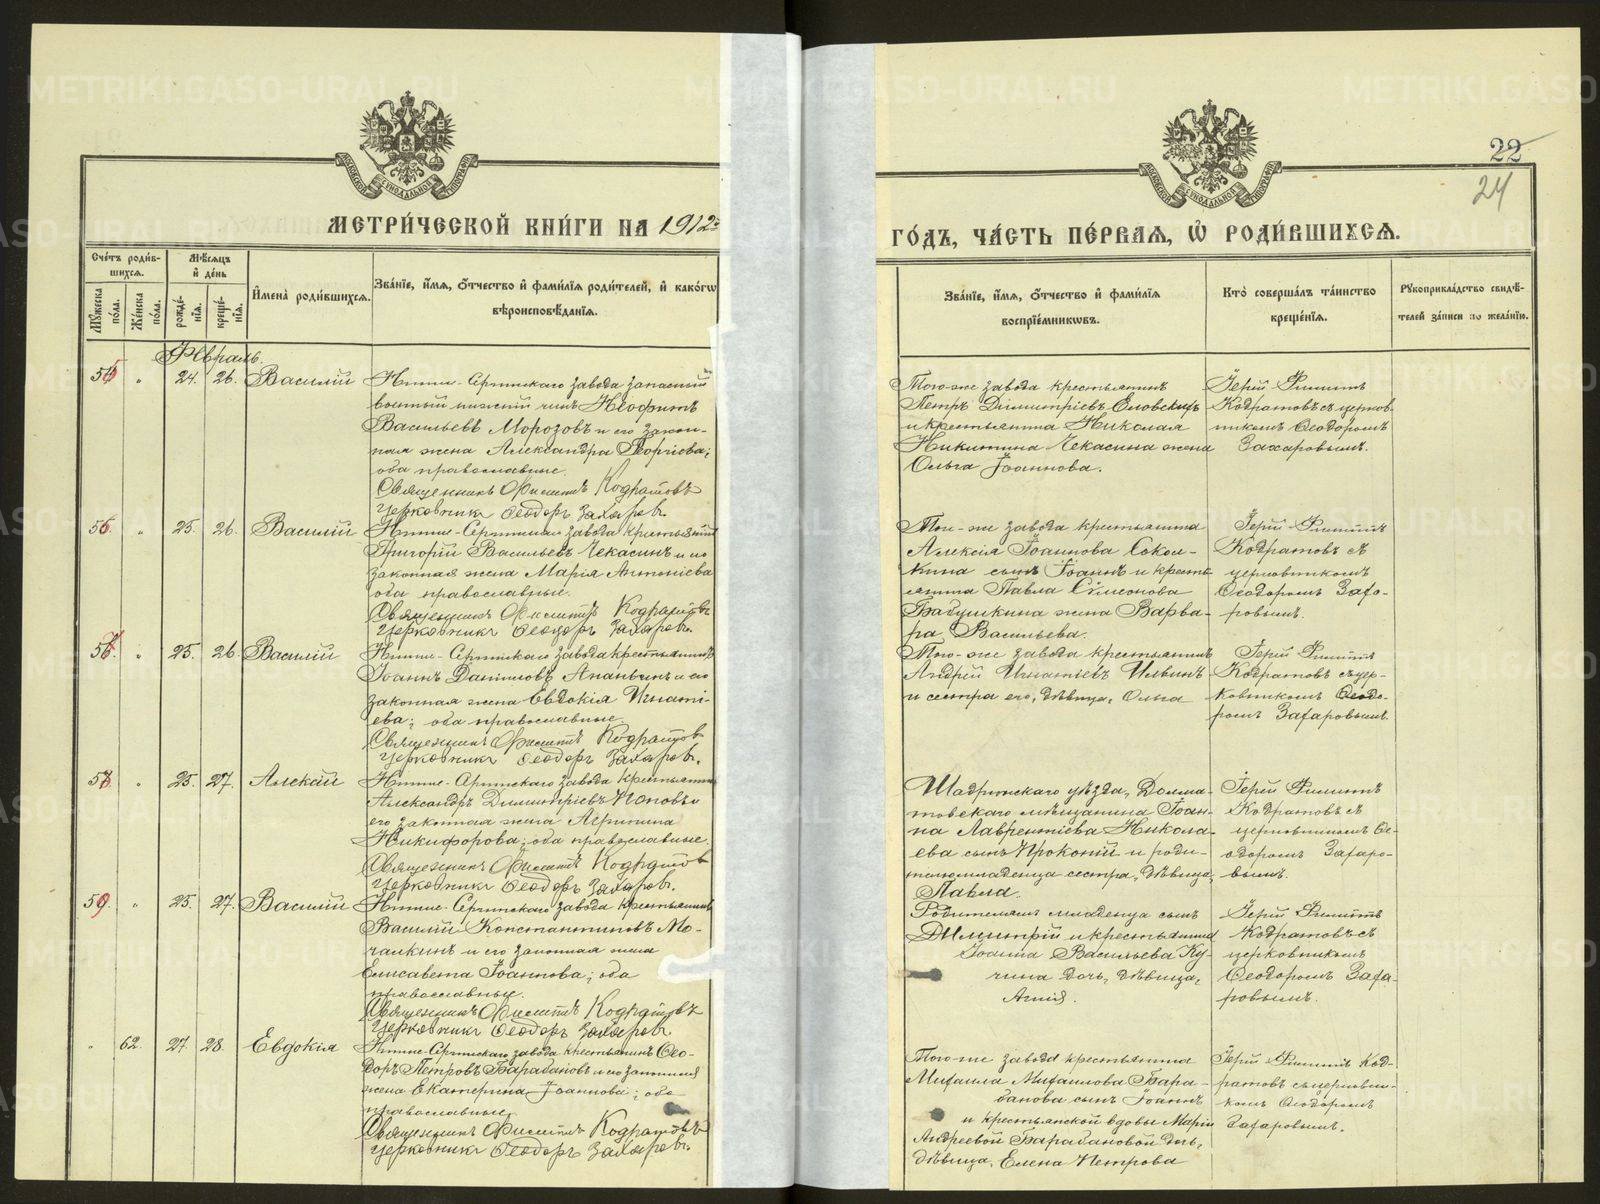 22
24
МЕТРИ́ЧЕСКОЙ КНИ́ГИ НА 1912
ГО́ДЪ, ЧА́СТЬ ПЕ́РВАЯ, Ѡ РОДИ́ВШИХСЯ.
Счетъ роди́вшихся.
Мужеска по́ла.
Же́нска по́ла.
Мѣ́сяцъ и де́нь
рожде́нїя.
креще́нїя.
И́мена̀ роди́вшихся.
Зва́нїе, и́мя, о́тчество и фами́лїя роди́телей, и како́гѡ
вѣроисповѣ́данїя.
Зва́нїе, и́мя, о́тчество и фами́лїя
воспрїе́мникѡвъ.
Кто̀ соверша́лъ та́инство
креще́нїя.
Рукоприкла́дство свидѣ́-
телей за́писи по жела́нїю.
Февраль.
55 " 24. 26. Василій
Нижне-Сергинскаго завода запасный
военный нижній чинъ Неофитъ
Васильевъ Морозовъ и его закон-
ная жена Александра Георгіева;
оба православные.
Священникъ Филиппъ Кодратовъ
Церковникъ Ѳеодоръ Захаровъ.
Того-же завода крестьянинъ
Петръ Димитріевъ Еловскихъ
и крестьянина Николая
Никитина Чекасина жена
Ольга Іоаннова.
Іерей Филиппъ
Кодратовъ съ церков-
никомъ Ѳеодоромъ
Захаровымъ.
56. " 25. 26. Василій
Нижне-Сергинскаго завода крестьянинъ
Григорій Васильевъ Чекасинъ и его
законная жена Марія Антоніева
оба православные.
Священникъ Филиппъ Кодратовъ
Церковникъ Ѳеодоръ Захаровъ.
Того-же завода крестьянина
Алексія Іоаннова Сокол-
кина сынъ Іоаннъ и кресть-
янина Павла Сѵмеонова
Бабушкина жена Варва-
ра Васильева.
Іерей Филиппъ
Кодратовъ съ
церковникомъ
Ѳеодоромъ Заха-
ровымъ.
57. " 25. 26. Василій
Нижне-Сергинскаго завода крестьянинъ
Іоаннъ Даниловъ Ананьинъ и его
законная жена Евдокія Игнаті-
ева; оба православные.
Священникъ Филиппъ Кодратовъ
Церковникъ Ѳеодоръ Захаровъ.
Того-же завода крестьянинъ
Андрей Игнатьевъ Ильинъ
и сестра его, дѣвица, Ольга
Іерей Филиппъ
Кодратовъ съ цер-
ковникомъ Ѳеодо-
ромъ Захаровымъ.
58 " 25. 27. Алексій
Нижне-Сергинскаго завода крестьянинъ
Александръ Димитріевъ Поповъ и
его законная жена Агрипина
Никифорова; оба православные.
Священникъ Филиппъ Кодратовъ
Церковникъ Ѳеодоръ Захаровъ.
Шадринскаго уѣзда, Долма-
товскаго мѣщанина Іоан-
на Лаврентіева Никола-
ева сынъ Прокопій и роди-
тельмладенца сестра, дѣвица,
Павла.
Іерей Филиппъ
Кодратовъ съ
церковникомъ Ѳе-
одоромъ Захаро-
вымъ.
59. " 25. 27. Василій
Нижне-Сергинскаго завода крестьянинъ
Василій Константиновъ Мо-
чалкинъ и его законная жена
Елисавета Іоаннова; оба
православные.
Священникъ Филиппъ Кодратовъ
Церковникъ Ѳеодоръ Захаровъ.
Родителей младенца сынъ
Димитрій и крестьянина
Іоанна Васильева Ку-
чина дочь, дѣвица,
Агнія.
Іерей Филиппъ
Кодратовъ съ
церковникомъ
Ѳеодоромъ Заха-
ровымъ.
" 62. 27. 28. Евдокія
Нижне-Сергинскаго завода крестьянинъ Ѳео-
доръ Петровъ Барабановъ и его законная
жена Екатерина Іоаннова; оба
православные.
Священникъ Филиппъ Кодратовъ
Церковникъ Ѳеодоръ Захаровъ.
Того-же завода крестьянина
Михаила Михаилова Бара-
банова сынъ Іоаннъ
и крестьянской вдовы Маріи
Андреевой Барабановой дочь,
дѣвица, Елена Петрова
Іерей Филиппъ Код-
ратовъ съ церковни-
комъ Ѳеодоромъ
Захаровымъ.